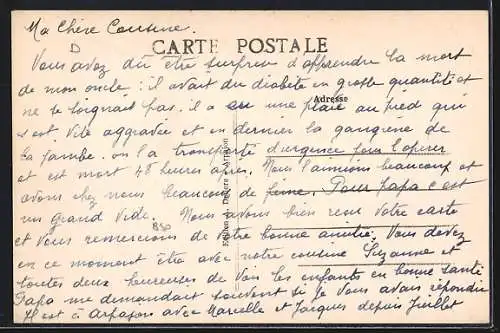 Ma Chère Cousine.
CARTE POSTALE
Vous avez dû être surprise d'apprendre la mort
de mon oncle. il avait du diabète en grosse quantité et
ne se soignait pas. il a eu une plaie au pied qui
Adresse
s'est vite aggravée et en dernier la gangrène de
la jambe. on l'a transporté d'urgence pour l'opérer
et est mort 48 heures après. Nous l'aimions beaucoup et
avons chez nous beaucoup de peine. Pour Papa c'est
un grand vide. Nous avons bien reçu votre carte
et vous remercions de votre bonne amitié. Vous devez
en ce moment être avec notre cousine Suzanne et
toutes deux heureuses de voir les enfants en bonne santé
Papa me demandait souvent si je vous avais répondu
Il est à Arpajon avec Marcelle et Jacques depuis Juillet